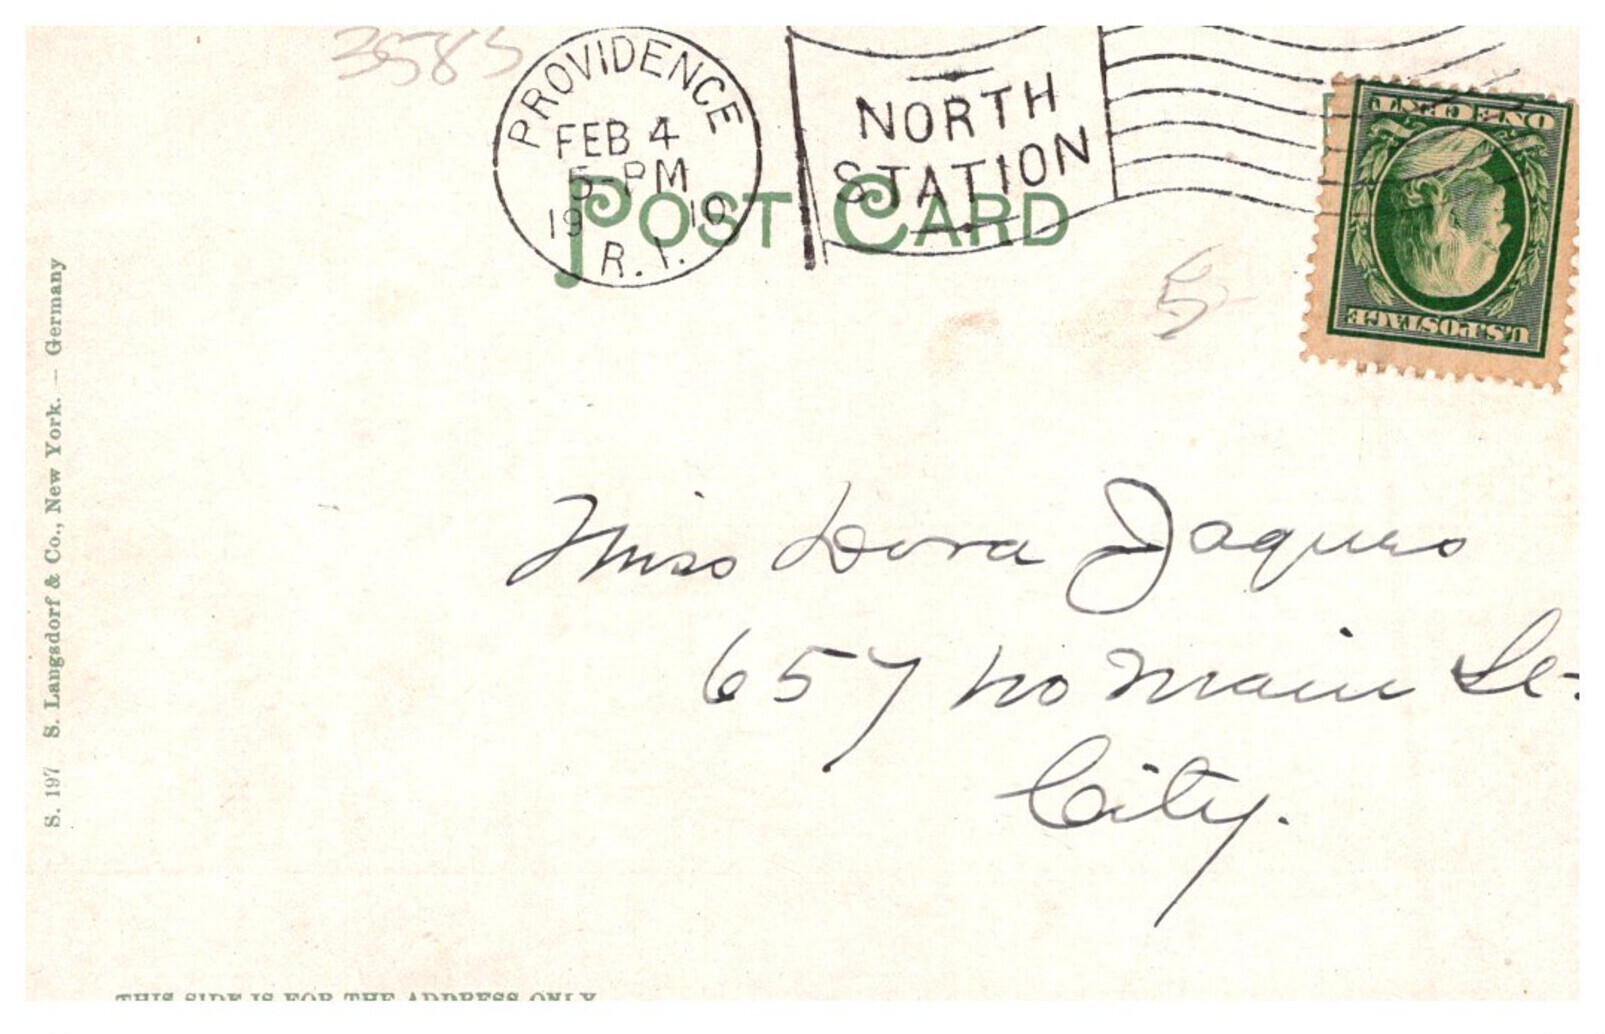 3585
PROVIDENCE
FEB 4
5-PM
19 10
R.I.
NORTH
STATION
POST CARD
ONE CENT
U.S. POSTAGE
5
Miss Dora Jaques
657 No Main St.
City.
S. 197 S. Langsdorf & Co., New York. – Germany
THIS SIDE IS FOR THE ADDRESS ONLY